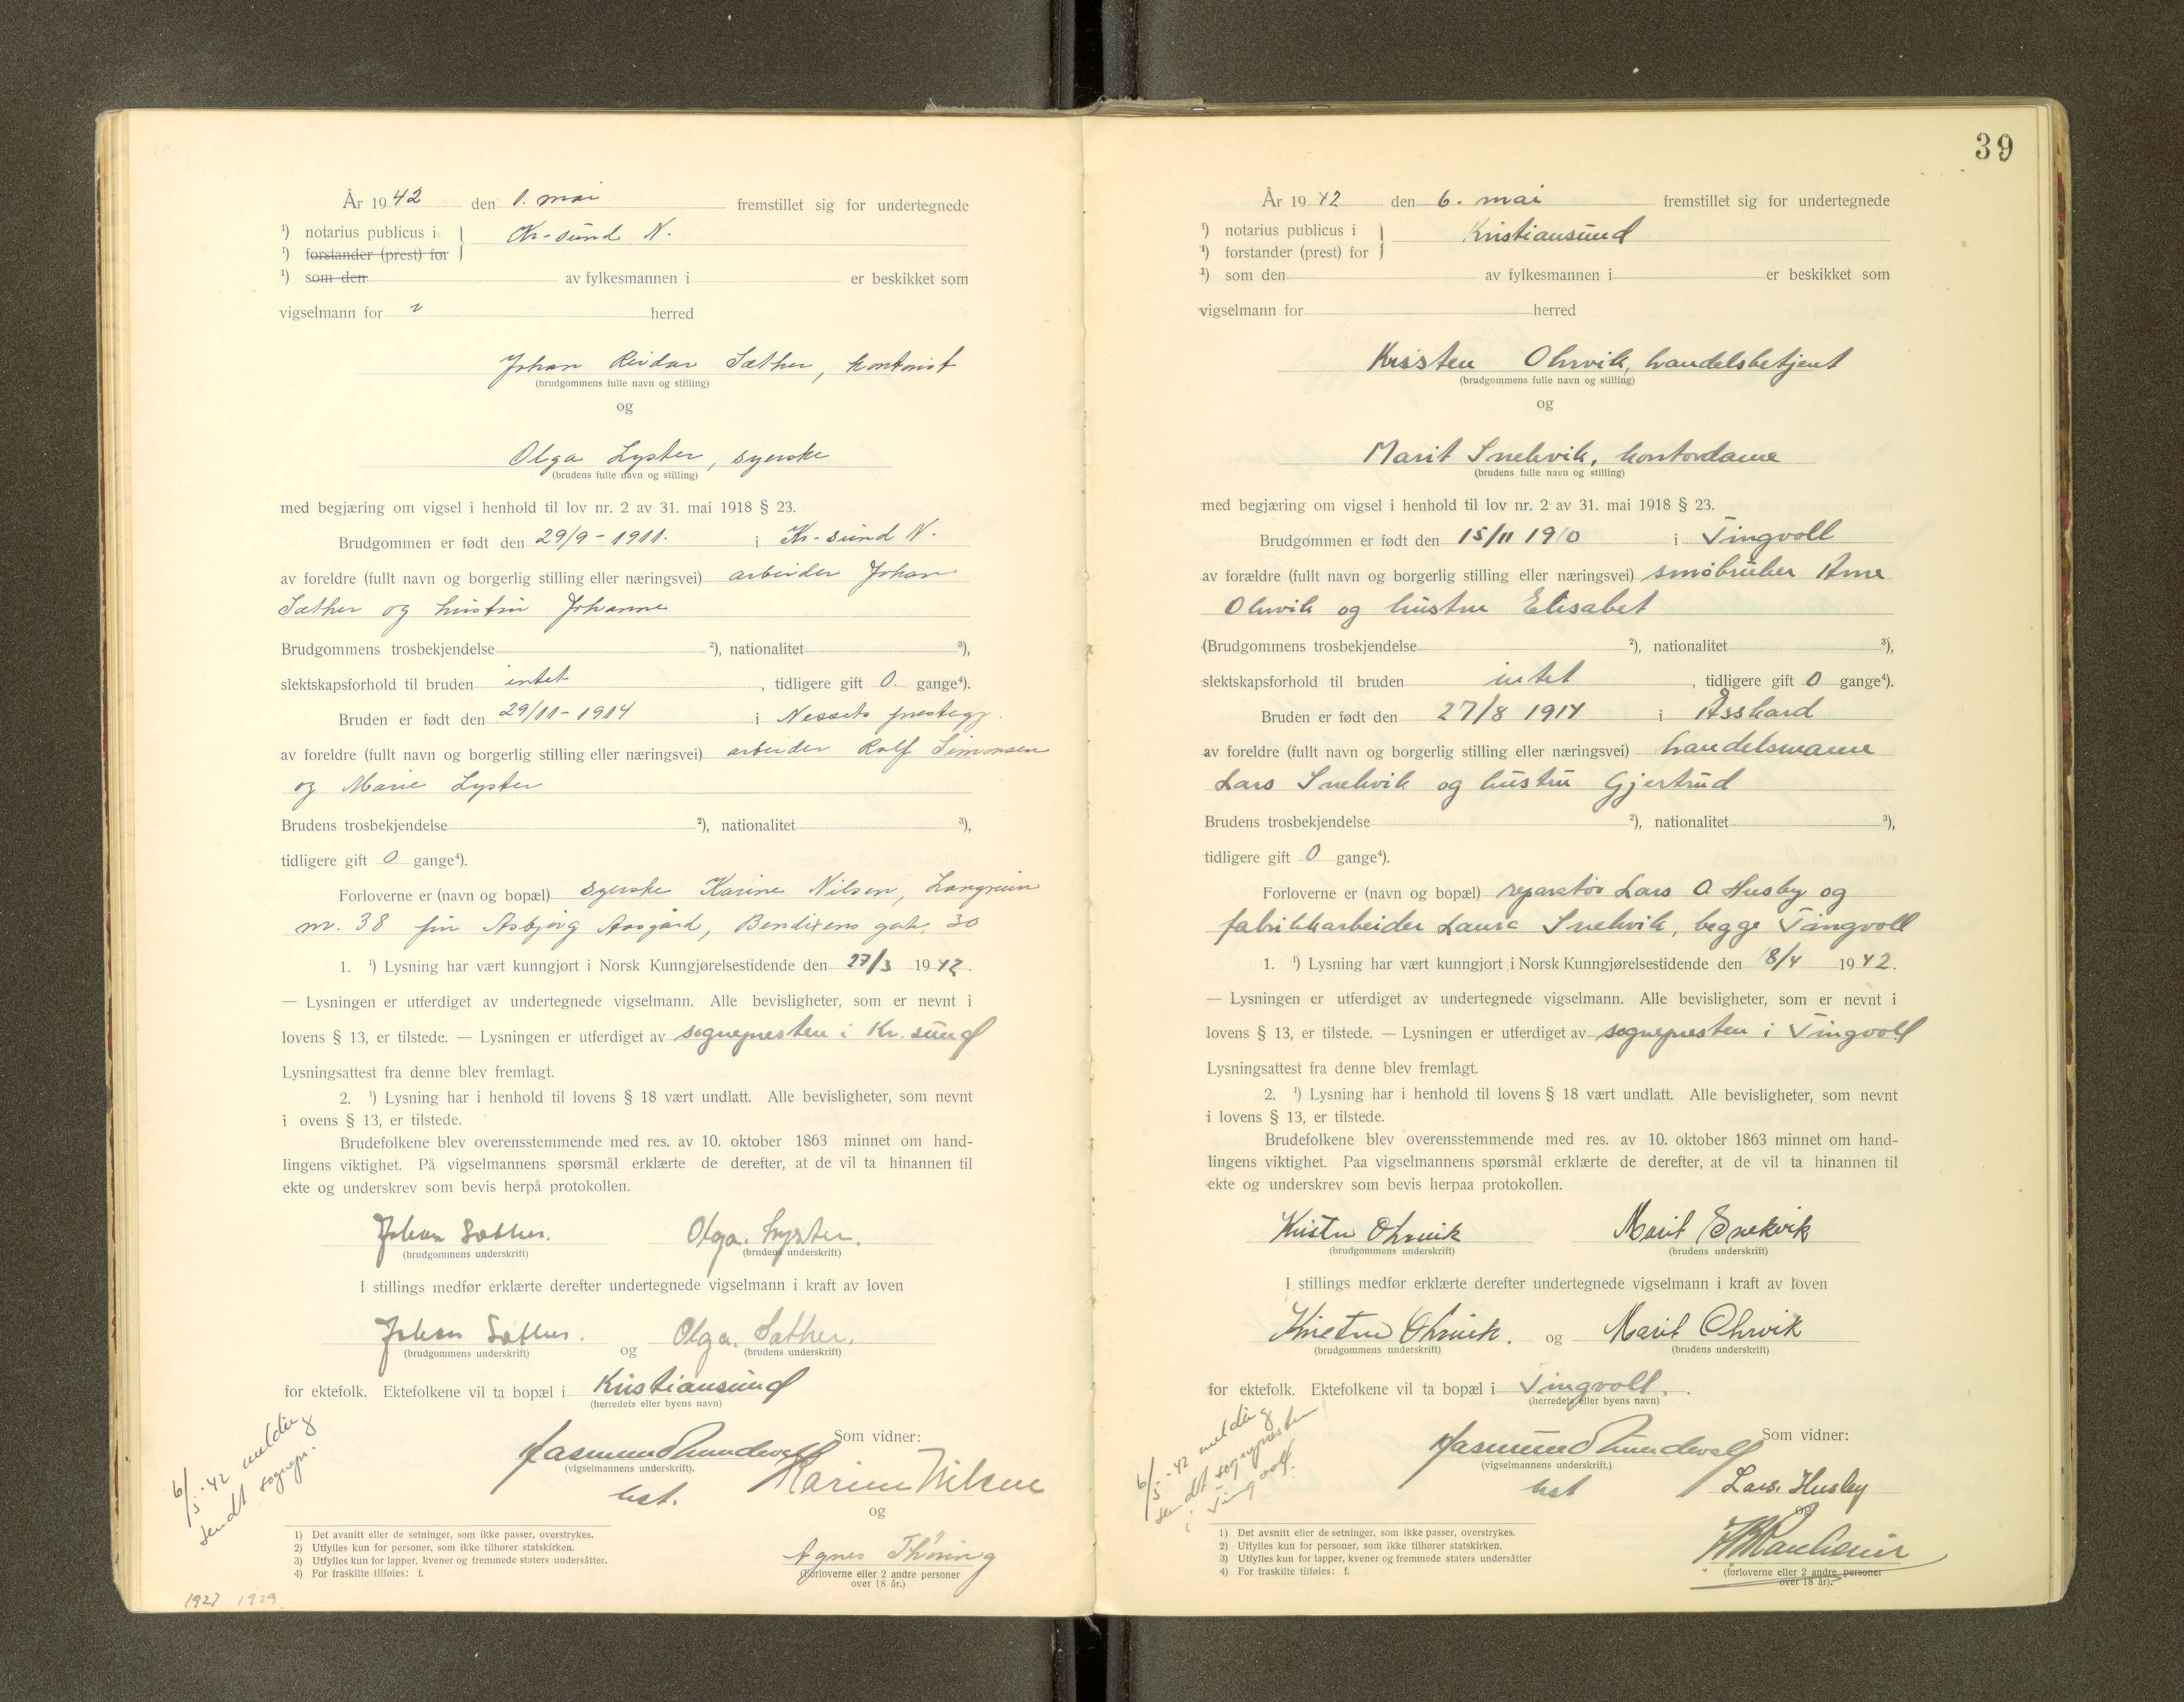 År 1942 den 1. mai fremstillet sig for undertegnede
¹) notarius publicus i Kr-sund N.
¹) forstander (prest) for
¹) som den av fylkesmannen i er beskikket som
vigselmann for herred
Johan Reidar Sæther, kontorist
(brudgommens fulle navn og stilling)
og
Olga Lyster, syerske
(brudens fulle navn og stilling)
med begjæring om vigsel i henhold til lov nr. 2 av 31. mai 1918 § 23.
Brudgommen er født den 29/9-1911. i Kr-sund N.
av foreldre (fullt navn og borgerlig stilling eller næringsvei) arbeider Johan
Sæther og hustru Johanne
Brudgommens trosbekjendelse ²), nationalitet ³),
slektskapsforhold til bruden intet, tidligere gift 0. gange⁴).
Bruden er født den 29/11-1914 i Nessets prestegj.
av foreldre (fullt navn og borgerlig stilling eller næringsvei) arbeider Rolf Simonsen
og Marie Lyster
Brudens trosbekjendelse ²), nationalitet ³),
tidligere gift 0 gange⁴).
Forloverne er (navn og bopæl) syerske Karine Nilsen,
nr. 38 Asbjørg Aasgård, Bendixens gate 30
1. ¹) Lysning har vært kunngjort i Norsk Kunngjørelsestidende den 27/3 1942.
— Lysningen er utferdiget av undertegnede vigselmann. Alle bevisligheter, som er nevnt i
lovens § 13, er tilstede. — Lysningen er utferdiget av sognepresten i Kr.sund
Lysningsattest fra denne blev fremlagt.
2. ¹) Lysning har i henhold til lovens § 18 vært undlatt. Alle bevisligheter, som nevnt
i ovens § 13, er tilstede.
Brudefolkene blev overensstemmende med res. av 10. oktober 1863 minnet om hand-
lingens viktighet. På vigselmannens spørsmål erklærte de derefter, at de vil ta hinannen til
ekte og underskrev som bevis herpå protokollen.
Johan Sæther. Olga. Lyster.
(brudgommens underskrift) (brudens underskrift)
I stillings medfør erklærte derefter undertegnede vigselmann i kraft av loven
Johan Sæther. og Olga. Sæther.
(brudgommens underskrift) (brudens underskrift)
for ektefolk. Ektefolkene vil ta bopæl i Kristiansund
(herredets eller byens navn)
6/5-42 melding
sendt sognepr.
Som vidner:
(vigselmannens underskrift).
Karine Nilsen
og
Agnes Thoring
(Forloverne eller 2 andre personer
over 18 år.)
1) Det avsnitt eller de setninger, som ikke passer, overstrykes.
2) Utfylles kun for personer, som ikke tilhører statskirken.
3) Utfylles kun for lapper, kvener og fremmede staters undersåtter.
4) For fraskilte tilføies: f.
1927 1929
39
År 1942 den 6. mai fremstillet sig for undertegnede
¹) notarius publicus i Kristiansund
¹) forstander (prest) for
¹) som den av fylkesmannen i er beskikket som
vigselmann for herred
Kristen Ohrvik, handelsbetjent
(brudgommens fulle navn og stilling)
og
Marit Snekvik, kontordame
(brudens fulle navn og stilling)
med begjæring om vigsel i henhold til lov nr. 2 av 31. mai 1918 § 23.
Brudgommen er født den 15/11 1910 i Tingvoll
av forældre (fullt navn og borgerlig stilling eller næringsvei) småbruker Arne
Ohrvik og hustru Elisabet
(Brudgommens trosbekjendelse ²), nationalitet ³),
slektskapsforhold til bruden intet, tidligere gift 0 gange⁴).
Bruden er født den 27/8 1914 i Åsskard
av foreldre (fullt navn og borgerlig stilling eller næringsvei) handelsmann
Lars Snekvik og hustru Gjertrud
Brudens trosbekjendelse ²), nationalitet ³),
tidligere gift 0 gange⁴).
Forloverne er (navn og bopæl) reparatør Lars O. Husby og
fabrikkarbeider Laura Snekvik, begge Tingvoll
1. ¹) Lysning har vært kunngjort i Norsk Kunngjørelsestidende den 8/4 1942.
— Lysningen er utferdiget av undertegnede vigselmann. Alle bevisligheter, som er nevnt i
lovens § 13, er tilstede. — Lysningen er utferdiget av sognepresten i Tingvoll
Lysningsattest fra denne blev fremlagt.
2. ¹) Lysning har i henhold til lovens § 18 vært undlatt. Alle bevisligheter, som nevnt
i lovens § 13, er tilstede.
Brudefolkene blev overensstemmende med res. av 10. oktober 1863 minnet om hand-
lingens viktighet. Paa vigselmannens spørsmål erklærte de derefter, at de vil ta hinannen til
ekte og underskrev som bevis herpaa protokollen.
Kristen Ohrvik Marit Snekvik
(brudgommens underskrift) (brudens underskrift)
I stillings medfør erklærte derefter undertegnede vigselmann i kraft av loven
Kristen Ohrvik. og Marit Ohrvik
(brudgommens underskrift) (brudens underskrift)
for ektefolk. Ektefolkene vil ta bopæl i Tingvoll.
(herredets eller byens navn)
6/5-42 melding
sendt sognepresten
i Tingvoll.
Som vidner:
(vigselmannens underskrift.)
Lars. Husby
og
(forloverne eller 2 andre personer
over 18 år).
1) Det avsnitt eller de setninger, som ikke passer, overstrykes.
2) Utfylles kun for personer, som ikke tilhører statskirken.
3) Utfylles kun for lapper, kvener og fremmede staters undersåtter
4) For fraskilte tilføies: f.